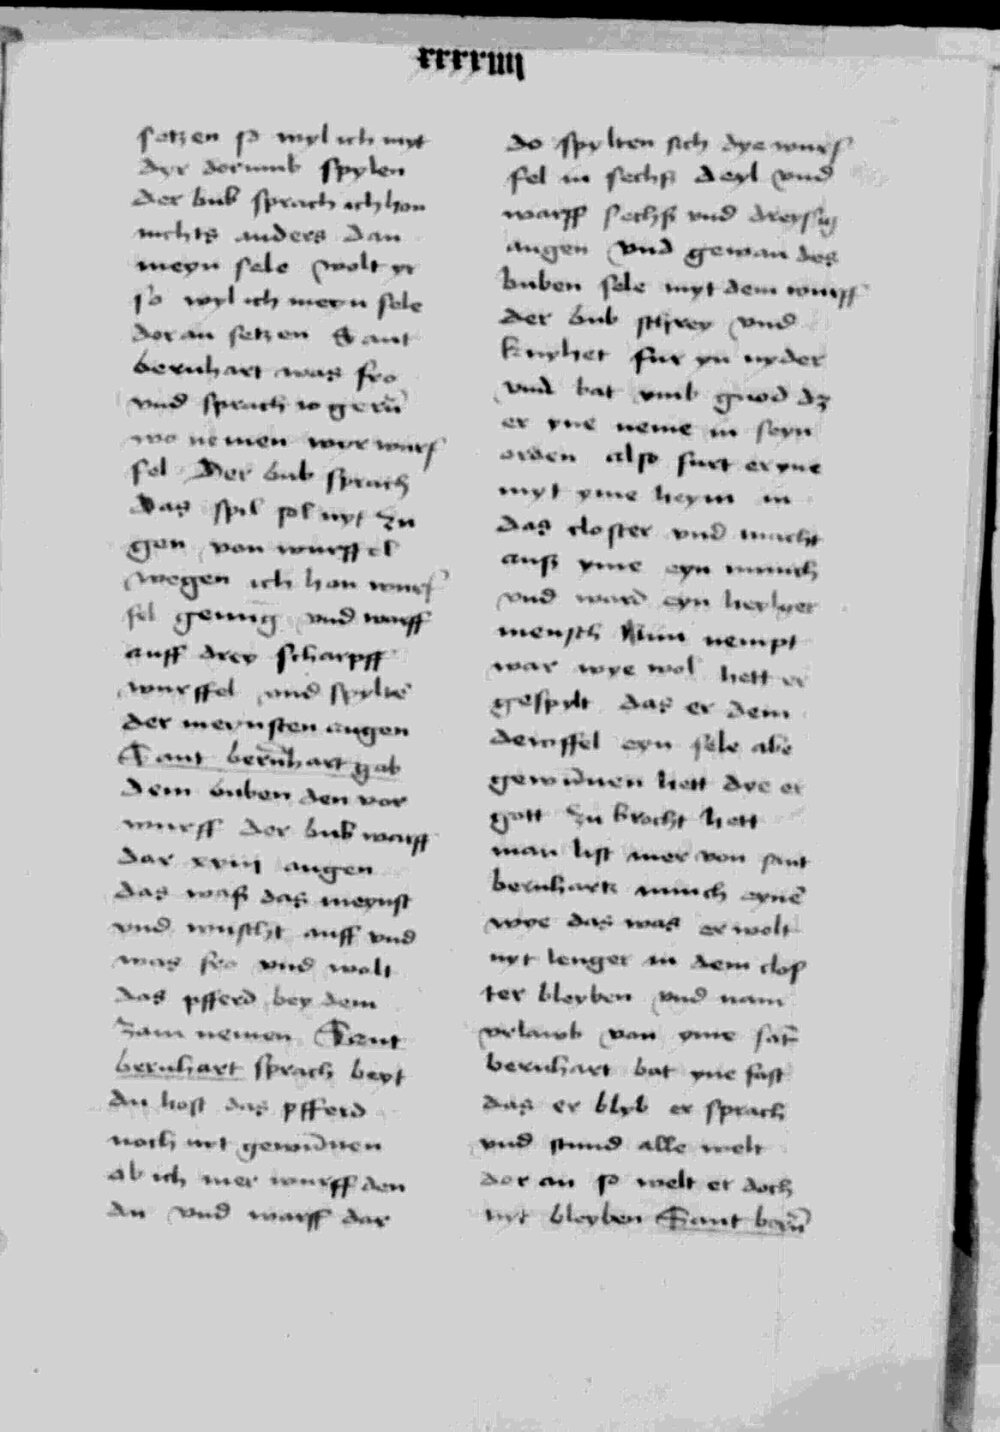 xxxxiiii
setzen so wyl ich myt
dyr dorumb spylen
der bub sprach ich hon
nichts anders dan
meyn sele wolt yr
so wyl ich meyn sele
dor an setzen Sant
bernhart was fro
vnd sprach io gern̄
wo nemen wyr wurf
fel Der bub sprach
das spil sol nyt zu
gen von wurffel
wegen ich hon wurf
fel genug vnd warff
auff drey scharpff
wurffel vnd spylte
der meynsten augen
Sant bern̄hart gab
dem buben den vor
wurff der bub warff
dar xviij augen
das waß das meynst
vnd wuscht auff vnd
was fro vnd wolt
das pfferd bey dem
zam nemen Sant
bernhart sprach beyt
du host das pfferd
noch nyt gewūnen
ab ich mer wurff den
du vnd warff dar
do spylten sich dye wurf
fel in sechß deyl vnd
warff sechß vnd dreysig
augen vnd gewan des
buben sele myt dem wurff
der bub schrey vnd
knyhet fur yn nyder
vnd bat vmb gnod dz
er yne neme in seyn
orden also furt er yne
myt yme heym in
das closter vnd macht
auß yme eyn munch
vnd ward eyn heylger
mensch Nun nempt
war wye wol hett er
gespylt das er dem
dewffel eyn sele abe
gewūnen hett dye er
gott zu brocht hett
man list mer von sant
bernharts munch eynē
wye das was er wolt
nyt lenger in dem clos
ter bleyben vnd nam
vrlawb von yme sāt
bernhart bat yne fast
das er blyb er sprach
vnd stund alle welt
dor an so welt er doch
nyt bleyben Sant bern̄